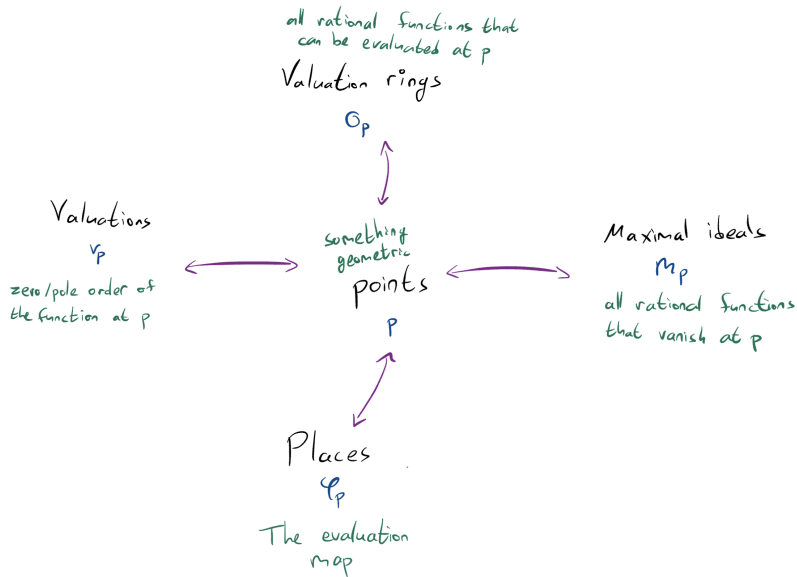 all rational functions that
can be evaluated at p
Valuation rings
𝒪ₚ
Valuations
vₚ
zero/pole order of
the function at p
something
geometric
points
p
Maximal ideals
mₚ
all rational functions
that vanish at p
Places
φₚ
The evaluation
map